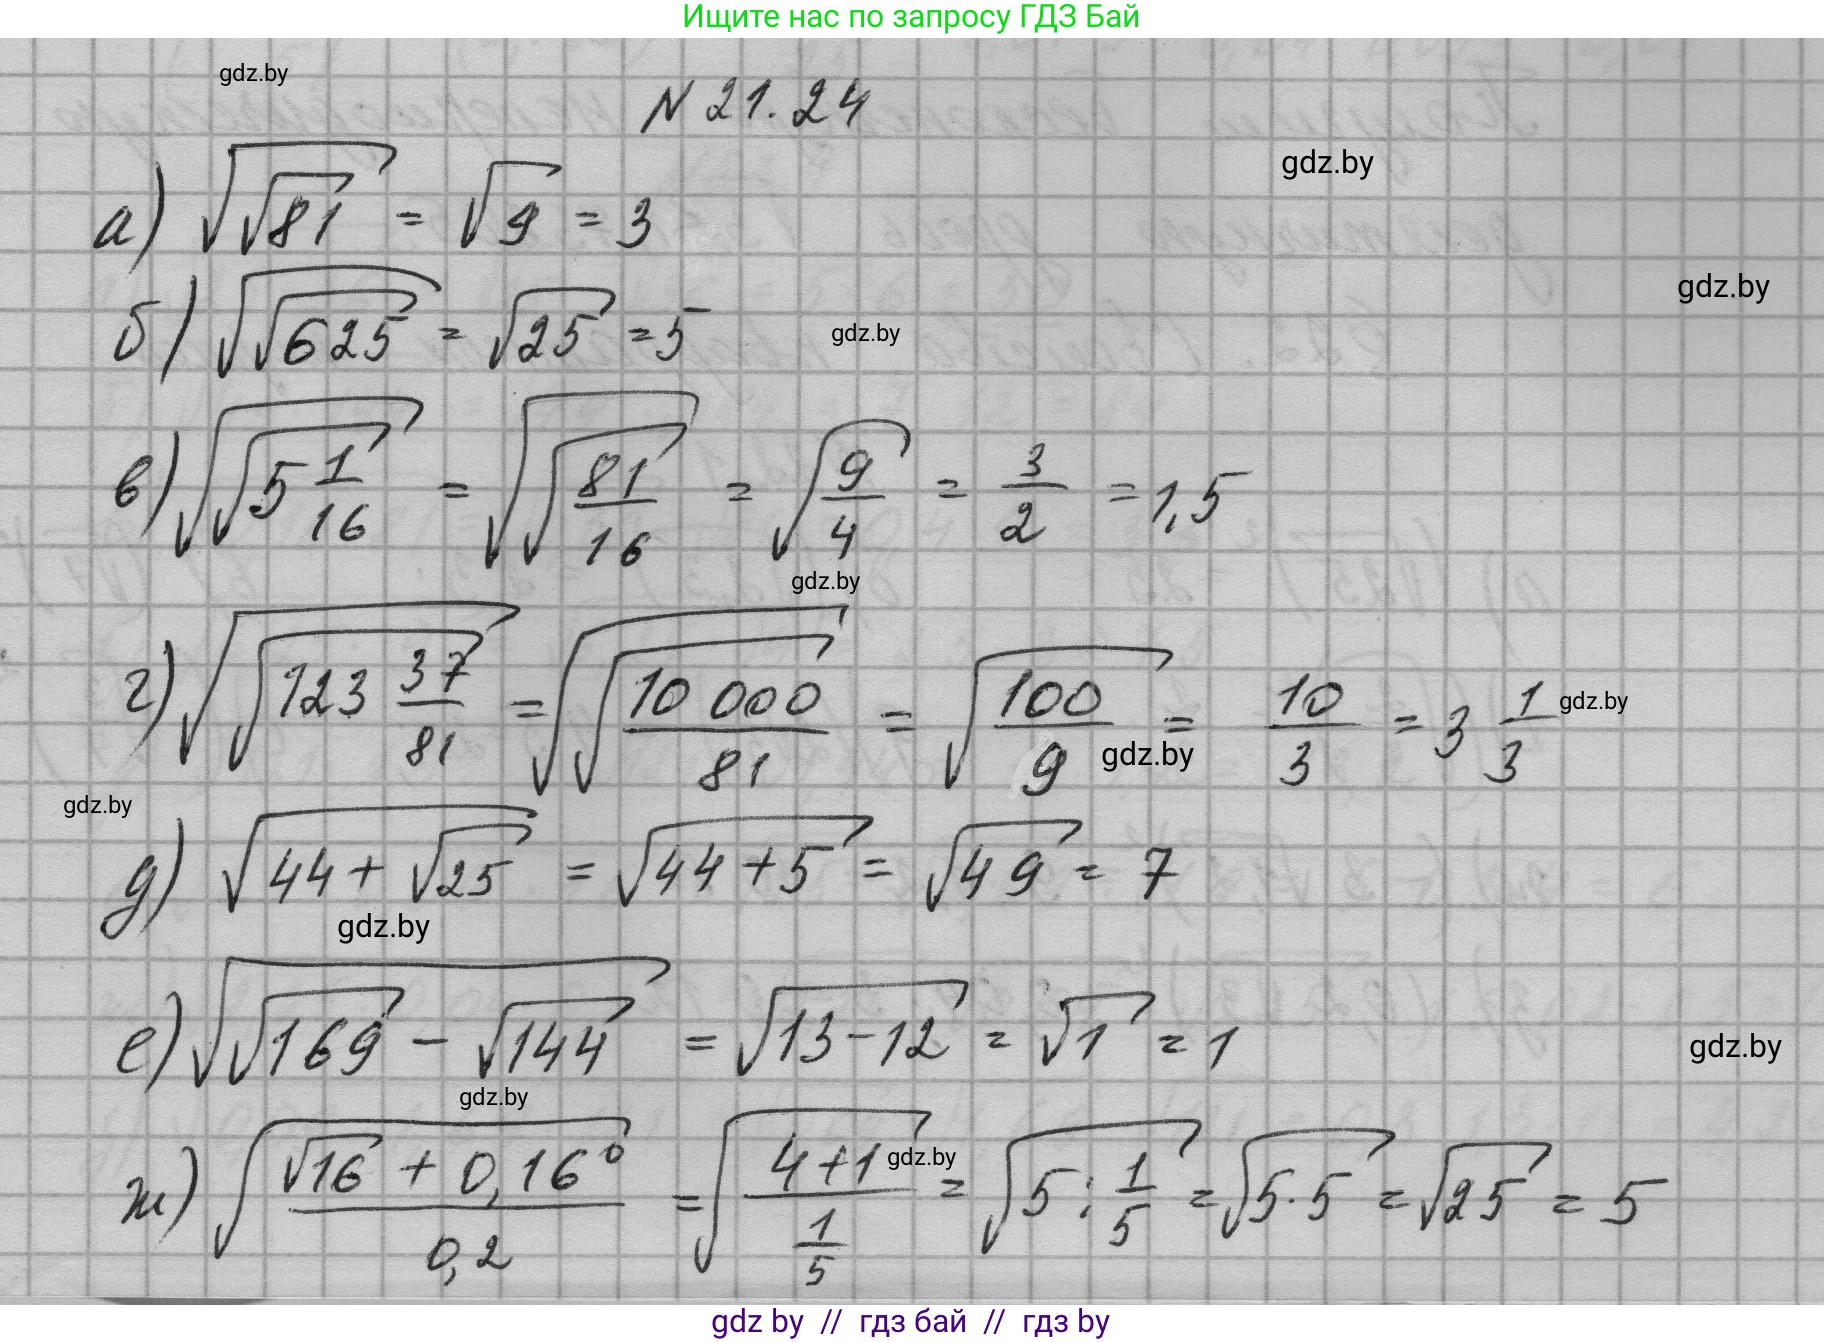 Ищите нас по запросу ГДЗ Бай
gdz.by
N 21.24
gdz.by
а) √√81 = √9 = 3
gdz.by
б) √√625 = √25 = 5
gdz.by
в) √√5 1/16 = √√81/16 = √9/4 = 3/2 = 1,5
gdz.by
г) √√123 37/81 = √√10 000/81 = √100/9 = 10/3 = 3 1/3
gdz.by
gdz.by
gdz.by
д) √44 + √25 = √44 + 5 = √49 = 7
gdz.by
е) √√169 - √144 = √13 - 12 = √1 = 1
gdz.by
gdz.by
ж) √(√16 + 0,16⁰)/0,2 = √(4+1)/(1/5) = √5 : 1/5 = √5·5 = √25 = 5
gdz.by
gdz by // гдз бай // гдз by